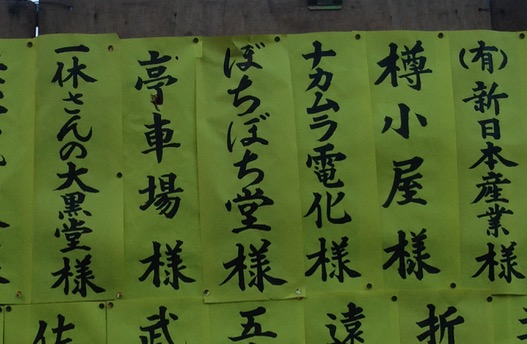 (有)新日本産業様
樽小屋様
ナカムラ電化様
ぼちぼち堂様
亭車場様
一休さんの大黒堂様
折
遠
五
武
佐